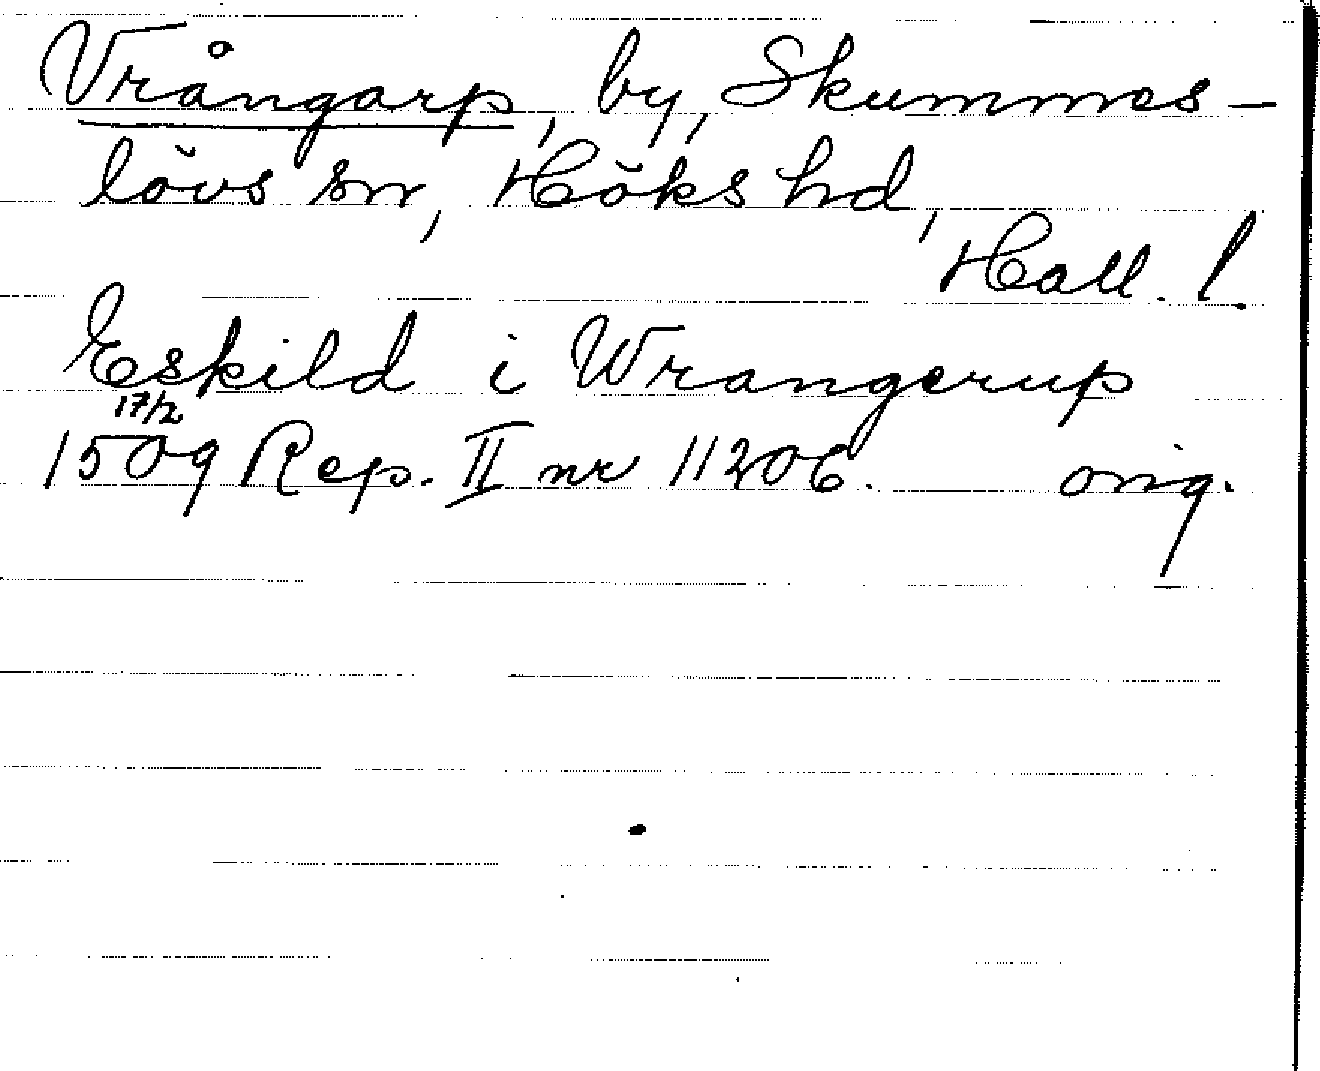 Vrångarp, by, Skummes-
lövs sn, Höks hd,
Hall. l.
Eskild i Wrangerup
17/2
1509 Rep. II nr 11206. orig.